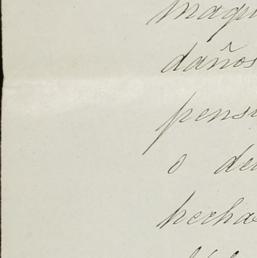 maqu
daños
pens
o de
hecha